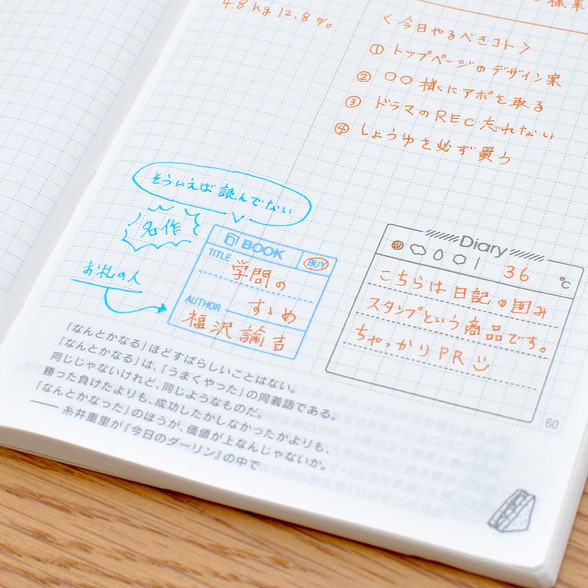 48kg 12.8%
様
<今日やるべきコト>
① トップページのデザイン案
② ○○様にアポを取る
③ ドラマのREC忘れない
④ しょうゆを必ず買う
そういえば読んでない
名作
お札の人
BOOK
TITLE
BUY
学問の
すゝめ
AUTHOR
福沢諭吉
Diary
36 ℃
こちらは日記の囲み
スタンプという商品です。
ちゃっかりPR
「なんとかなる」ほどすばらしいことはない。
「なんとかなる」は、「うまくやった」の同義語である。
同じじゃないけれど、同じようなものだ。
勝った負けたよりも、成功したかしなかったかよりも、
「なんとかなった」のほうが、価値が上なんじゃないか。
── 糸井重里が『今日のダーリン』の中で
60